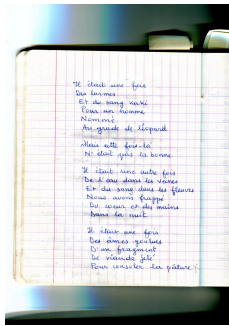 Il était une fois
Des larmes
Et du sang kaki
Pour un homme
Nommé
Au grade de léopard
Mais cette fois-là
N'était pas la bonne
Il était une autre fois
De l'eau dans les veines
Et du sang dans les fleuves
Nous avons frappé
Du coeur et des mains
Dans la nuit
Il était une fois
Des âmes goulues
D'un fragment
De viande jeté
Pour consoler la pâture